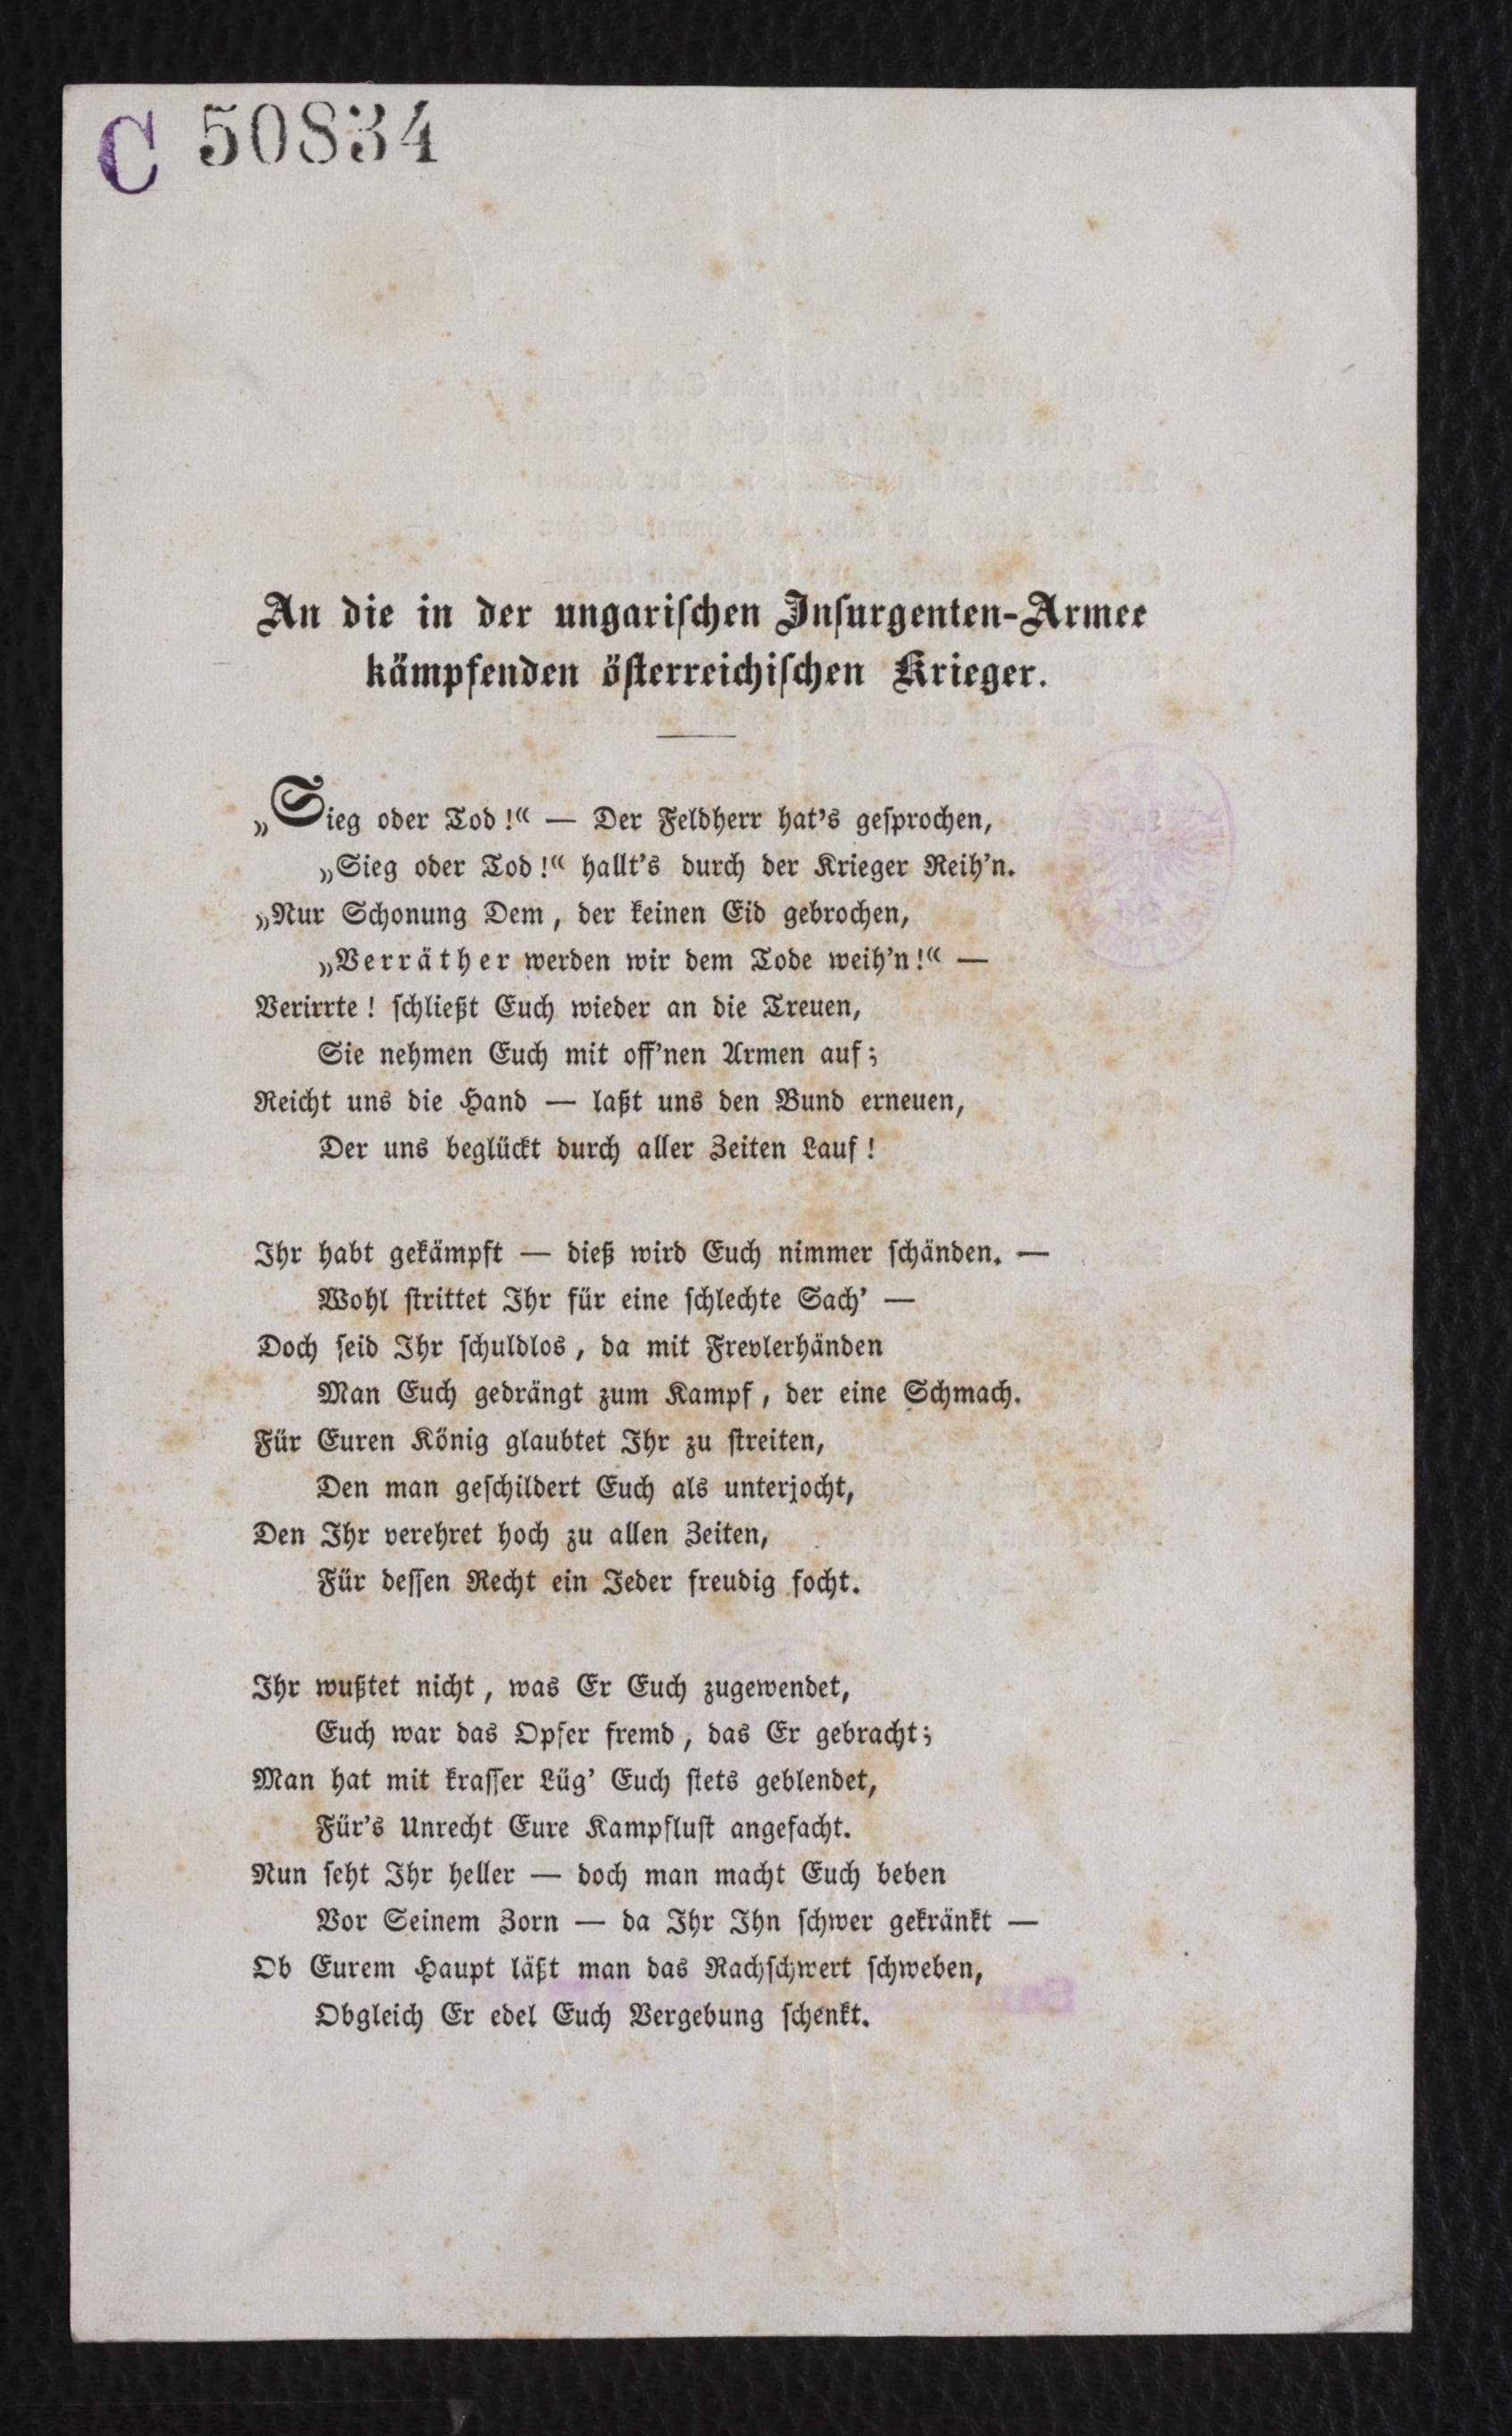 C 50834
An die in der ungariſchen Inſurgenten-Armee
kämpfenden öſterreichiſchen Krieger.
„Sieg oder Tod!“ — Der Feldherr hat's geſprochen,
„Sieg oder Tod!“ hallt's durch der Krieger Reih'n.
„Nur Schonung Dem, der keinen Eid gebrochen,
„Verräther werden wir dem Tode weih'n!“ —
Verirrte! ſchließt Euch wieder an die Treuen,
Sie nehmen Euch mit off'nen Armen auf;
Reicht uns die Hand — laßt uns den Bund erneuen,
Der uns beglückt durch aller Zeiten Lauf!
Ihr habt gekämpft — dieß wird Euch nimmer ſchänden. —
Wohl ſtrittet Ihr für eine ſchlechte Sach' —
Doch ſeid Ihr ſchuldlos, da mit Frevlerhänden
Man Euch gedrängt zum Kampf, der eine Schmach.
Für Euren König glaubtet Ihr zu ſtreiten,
Den man geſchildert Euch als unterjocht,
Den Ihr verehret hoch zu allen Zeiten,
Für deſſen Recht ein Jeder freudig focht.
Ihr wußtet nicht, was Er Euch zugewendet,
Euch war das Opfer fremd, das Er gebracht;
Man hat mit kraſſer Lüg' Euch ſtets geblendet,
Für's Unrecht Eure Kampfluſt angefacht.
Nun ſeht Ihr heller — doch man macht Euch beben
Vor Seinem Zorn — da Ihr Ihn ſchwer gekränkt —
Ob Eurem Haupt läßt man das Rachſchwert ſchweben,
Obgleich Er edel Euch Vergebung ſchenkt.